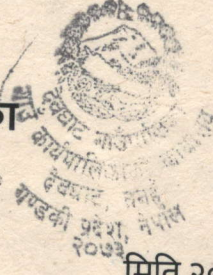 का
देवघाट गाउँपालिका
कार्यपालिकाको कार्यालय
देवघाट, तनहुँ
गण्डकी प्रदेश, नेपाल
२०७३
मिति २०